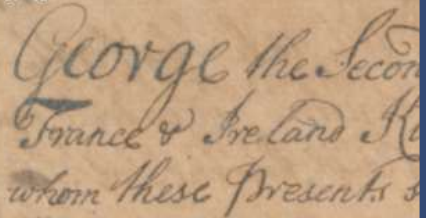 George the Secon
France & Ireland Ki
whom these Presents s